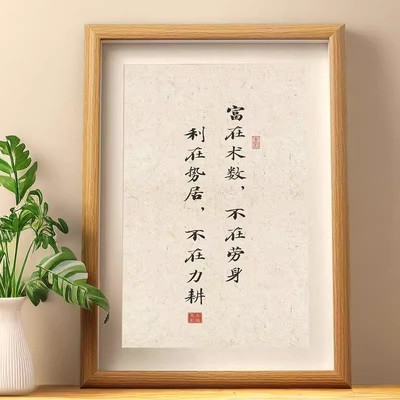 富在术数，不在劳身
利在势居，不在力耕